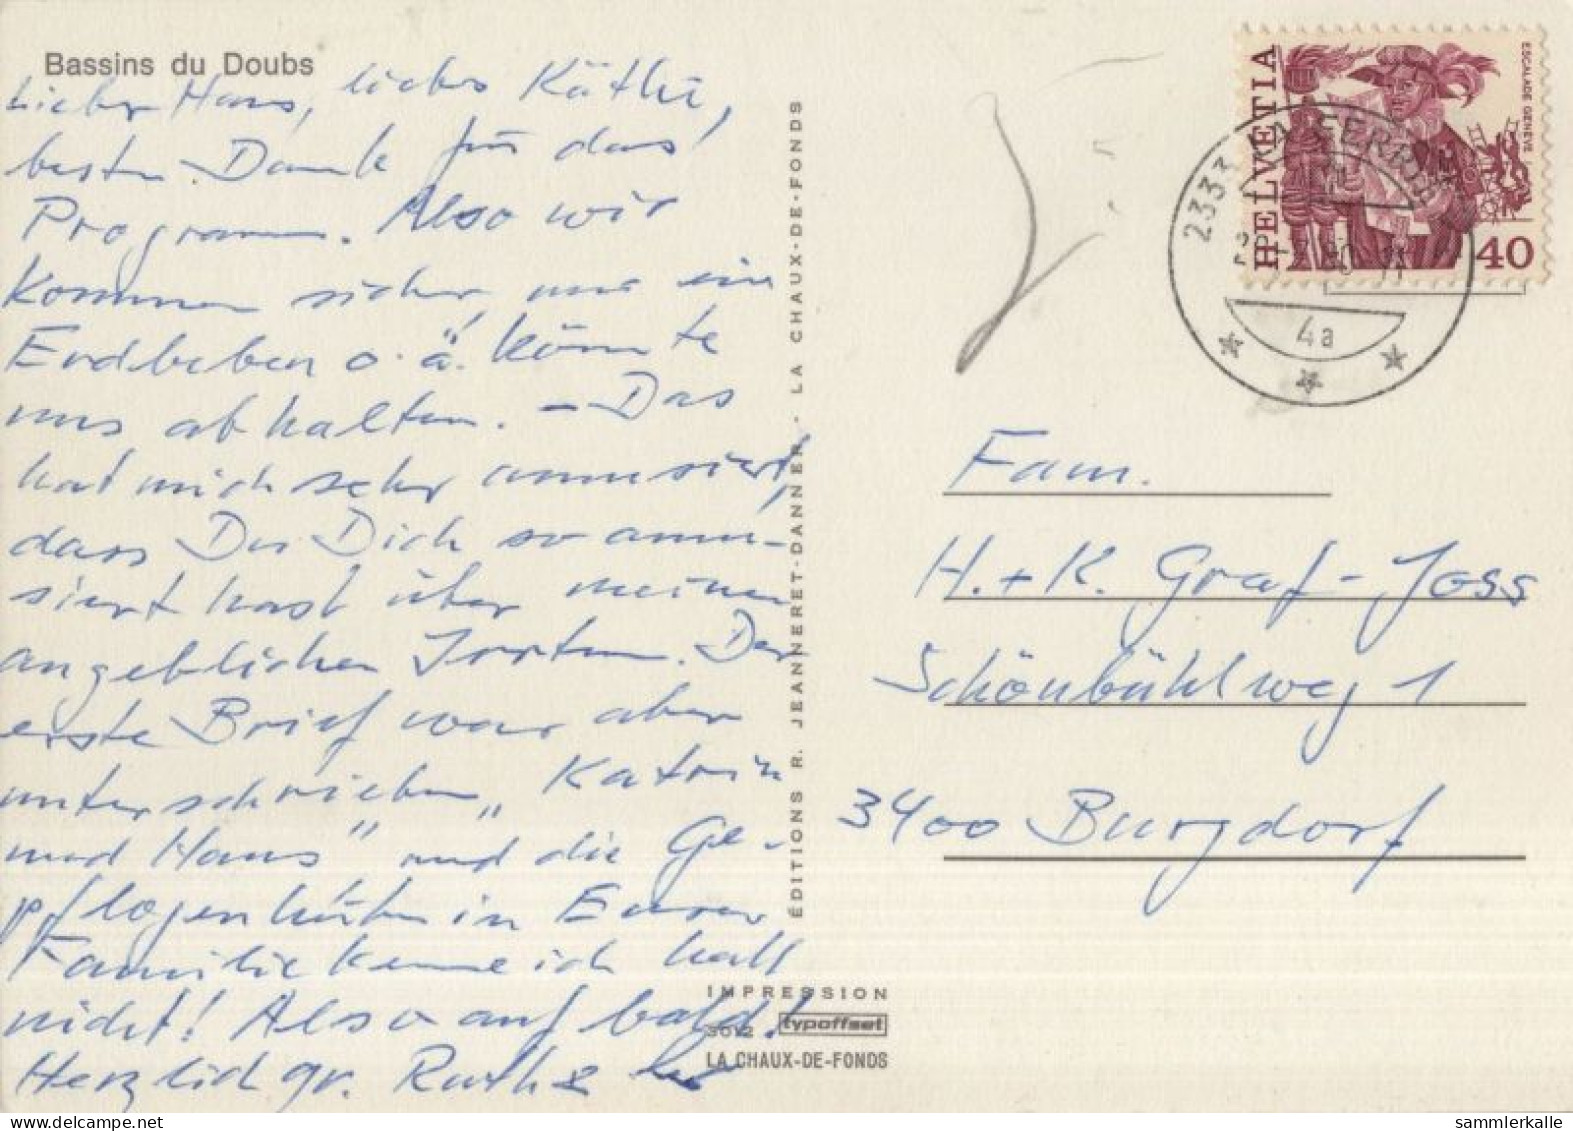 Bassins du Doubs
Lieber Hans, liebes Käthi,
besten Dank für das
Programm. Also wir
kommen sicher, nur ein
Erdbeben o. ä. könnte
uns abhalten. – Das
hat mich sehr amusiert,
dass Du Dich so amü-
siert hast über meinen
angeblichen Irrtum. Der
erste Brief war aber
unterschrieben „Katrin
und Hans" und die Ge-
pflogenheiten in Eurer
Familie kenne ich halt
nicht! Also auf bald!
Herzlich gr. Ruth &
ÉDITIONS R. JEANNERET-DANNER - LA CHAUX-DE-FONDS
IMPRESSION
3012 typoffset
LA CHAUX-DE-FONDS
HELVETIA
ESCALADE GENÈVE
40
2333 LA FERRIÈRE
4a
Fam.
H. + K. Graf-Joss
Schönbühlweg 1
3400 Burgdorf
delcampe.net
sammlerkalle